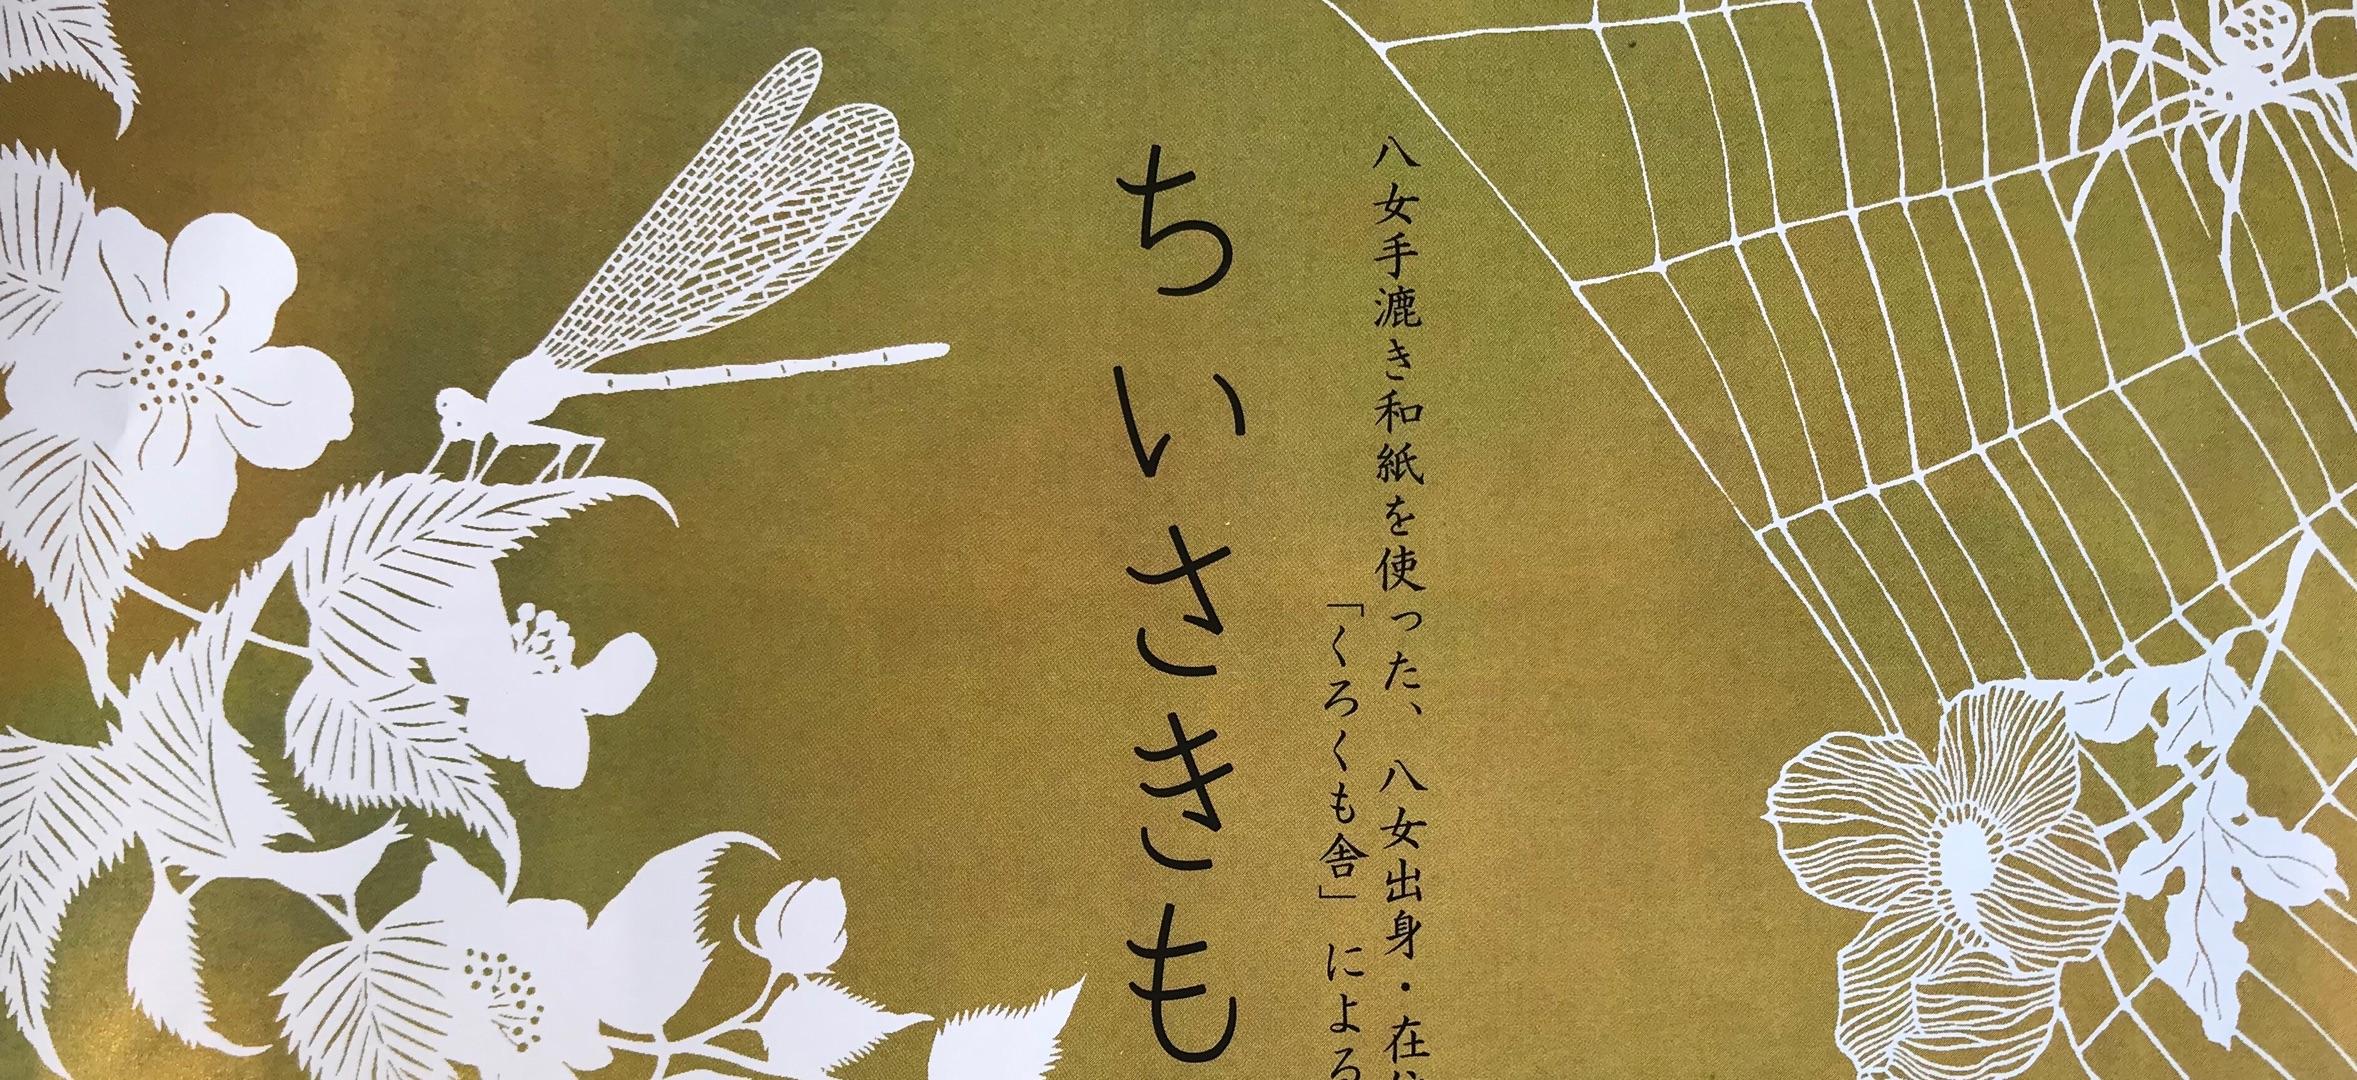 八女手漉き和紙を使った、八女出身・在
「くろくも舎」による
ちいさきも